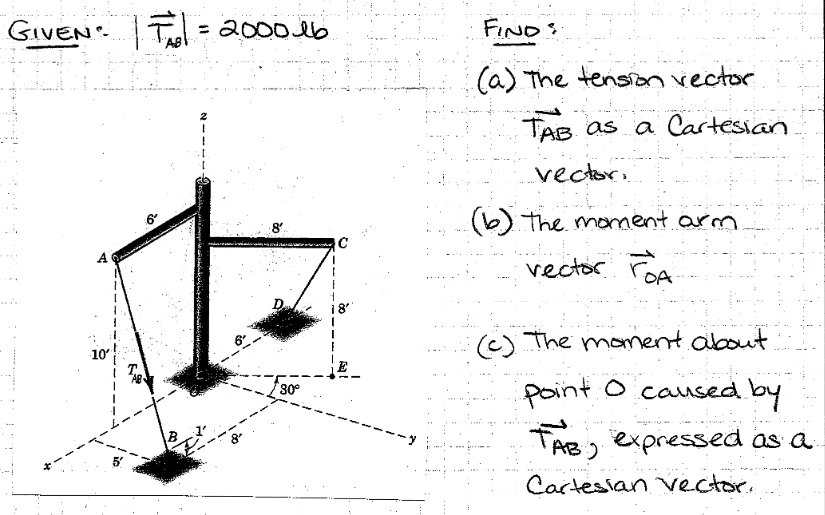 GIVEN: |T⃗AB| = 2000 lb
FIND:
(a) The tension vector
T⃗AB as a Cartesian
vector.
(b) The moment arm
vector r⃗OA
(c) The moment about
point O caused by
T⃗AB, expressed as a
Cartesian vector.
z
6'
8'
A
C
D
8'
10'
6'
TAB
E
O
30°
B
1'
8'
y
x
5'